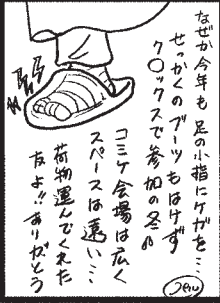 なぜか今年も足の小指にケガを…
せっかくのブーツもはけず
ク〇ックスで参加の冬。
コミケ会場は広く
スペースは遠い…
荷物運んでくれた
友よ!!ありがとう